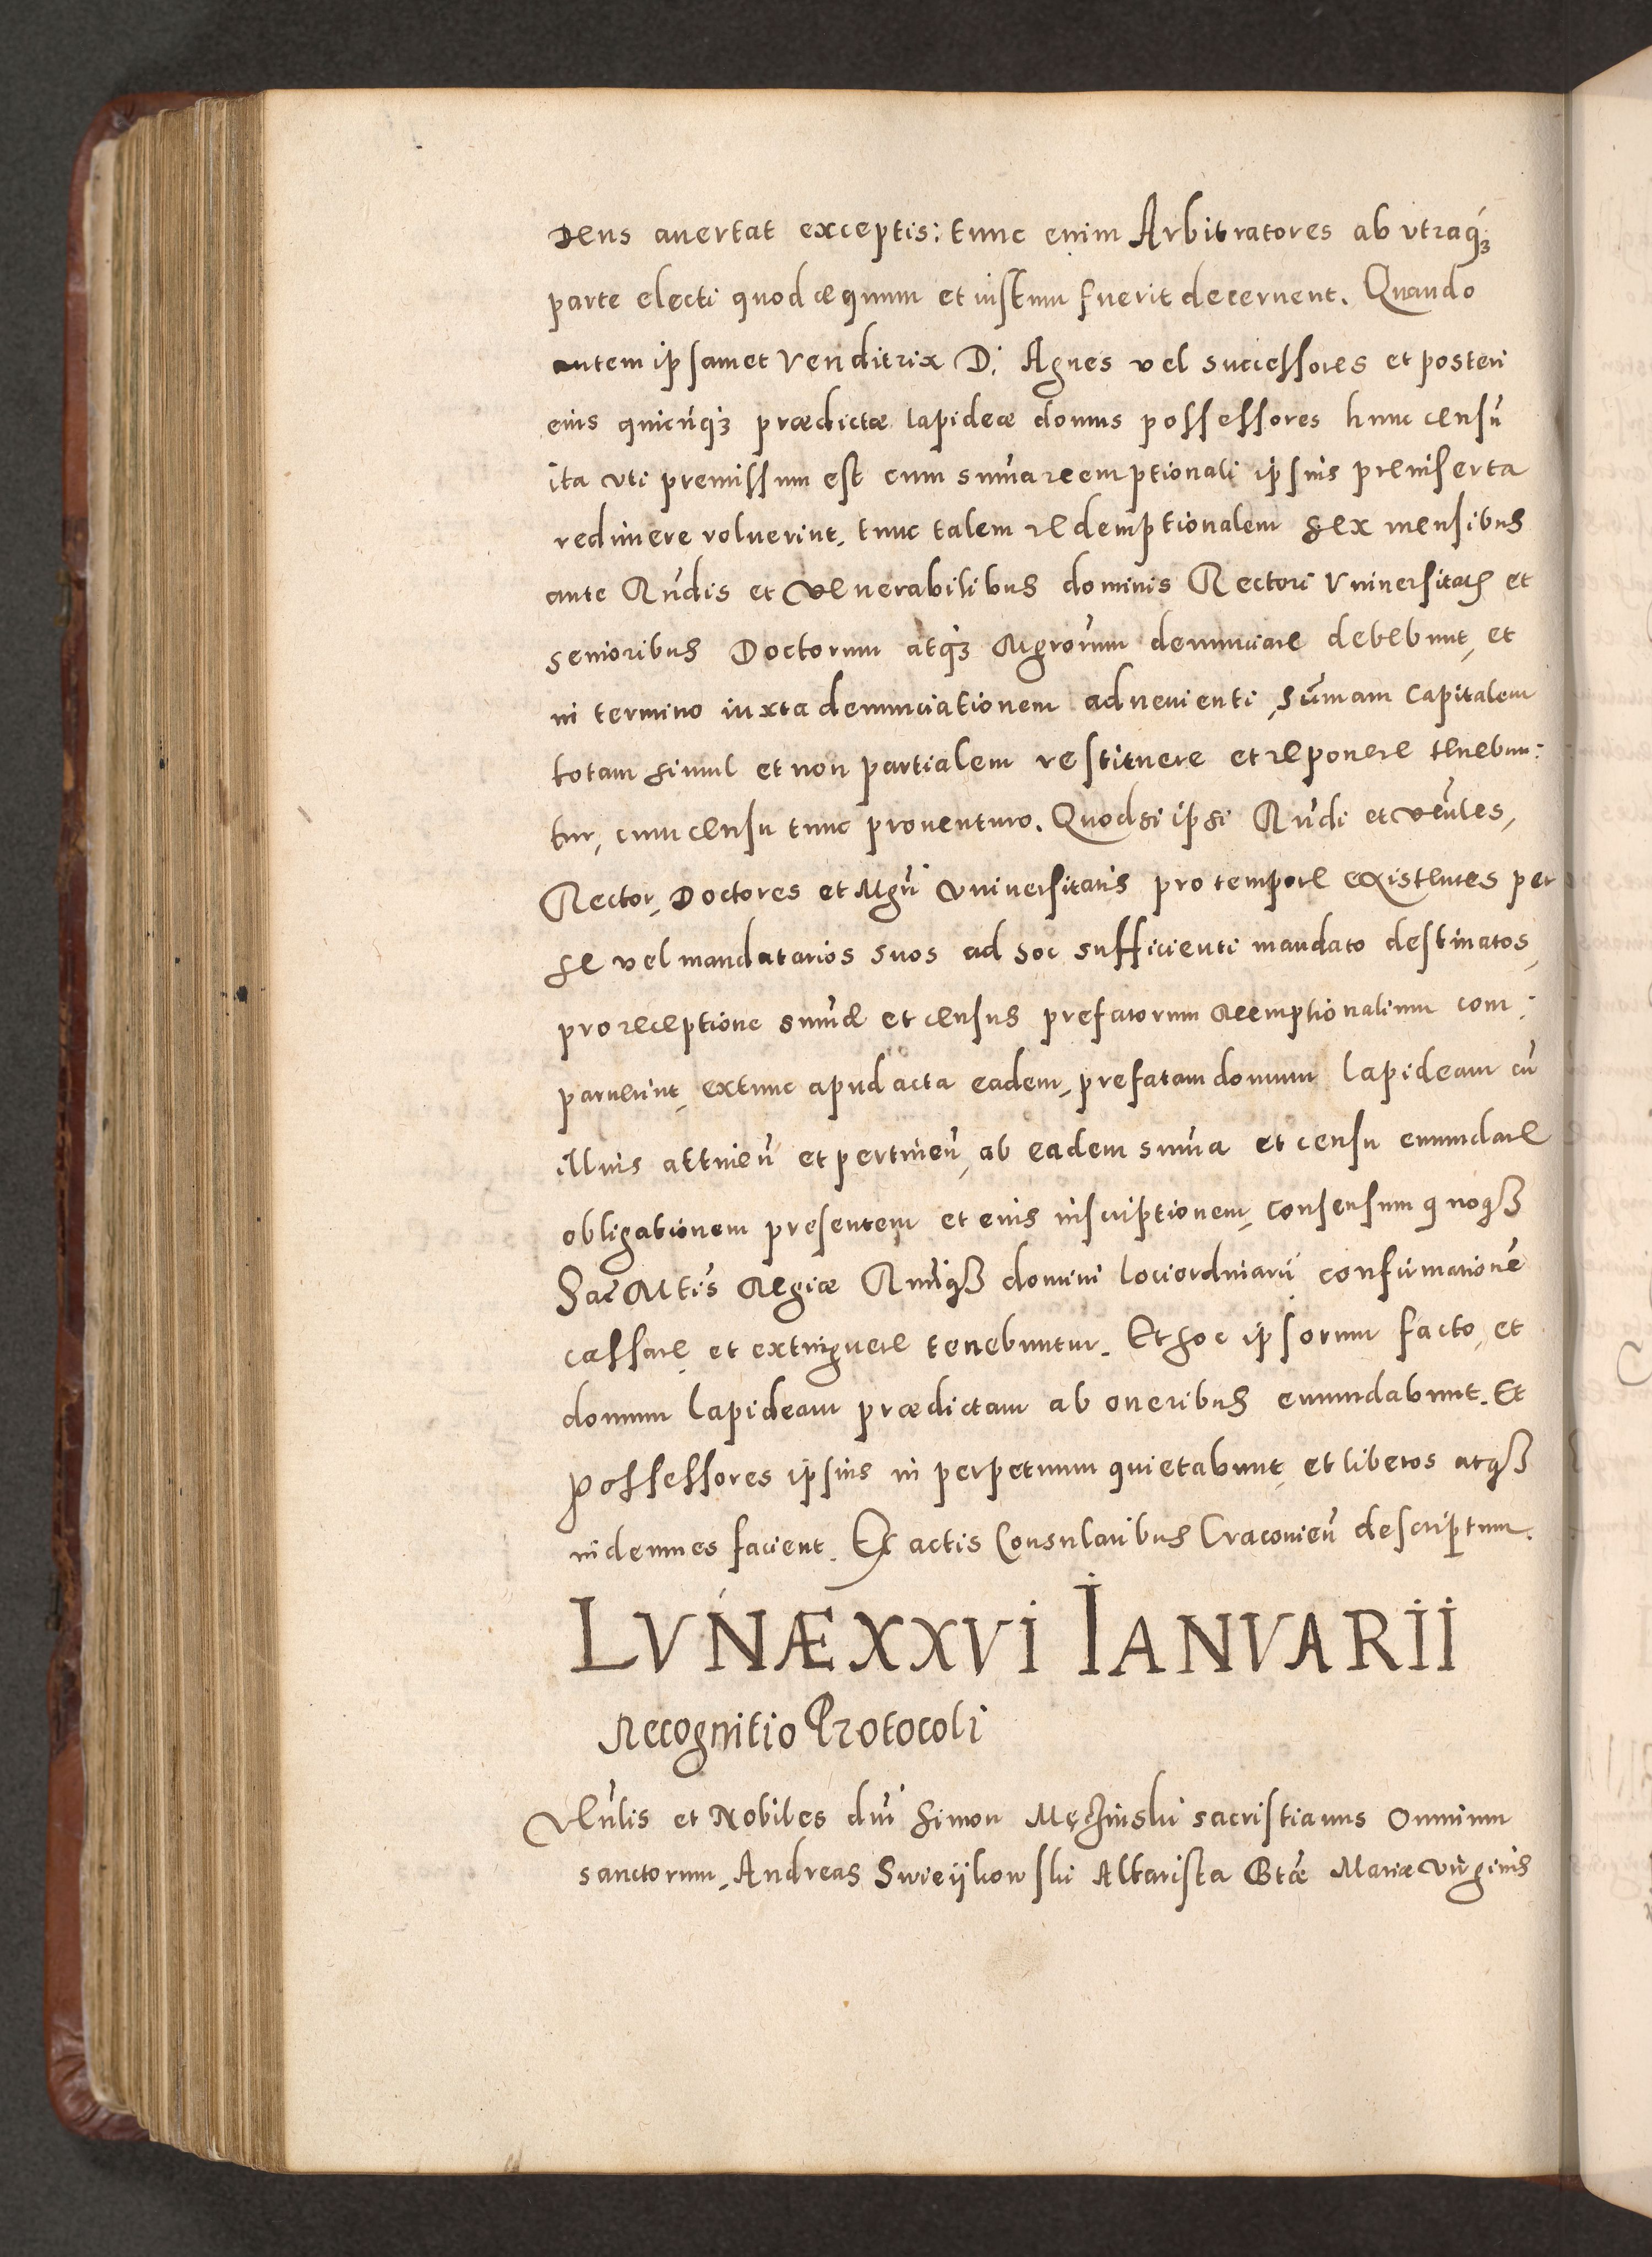 Deus auertat exceptis: tunc enim Arbitratores ab vtraq́ꝫ
parte electi quod æquum et iustum fuerit decernent. Quando
autem ipsamet Venditrix D: Agnes vel successores et posteri
eius quicūq́ꝫ prædictæ lapideæ domus possessores hunc censū
ita vti premissum est cum sum̄a reemptionali ipsius preinserta
redimere voluerint, tunc talem redemptionalem sex mensibus
ante Rn̄dis et Venerabilibus dominis Rectori Vniuersitatꝭ et
senioribus Doctorum atq́ꝫ Mgrorum denunciare debebunt, et
in termino iuxta denunciationem adueuienti, sum̄am Capitalem
totam simul et non partialem restituere et reponere tenebun:
tur, cum censu tunc prouenturo. Quodsi ipsi Rn̄di et veūles,
Rector, Doctores et Mgri Vniuersitatis pro tempore existentes per
se vel mandatarios suos ad hoc sufficienti mandato destinatos,
pro receptione sum̄æ et census prefatorum reemptionalium com:
paruerint, extunc apud acta eadem, prefatam domum lapideam cū
illius attineñ et pertineñ, ab eadem sum̄a et censu emundare
obligationem presentem et eius inscriptionem, consensum quoqꝫ
Sac̄ Mtis Regiæ Rn̄diqꝫ domini lociordinarii confirmationē
cassare, et extinguere tenebuntur. Et hoc ipsorum facto, et
domum lapideam prædictam ab oneribus emundabunt. Et
possessores ipsius in perpetuum quietabunt, et liberos atqꝫ
indemnes facient. Ex actis Consularibus Cracouieñ descriptum.
LVNÆ XXVI IANVARII
Recognitio Protocoli
Veūlis et Nobiles dn̄i Simon Męczinski sacristianus Omnium
sanctorum, Andreas Swieijkowski Altarista Btæ Mariæ virginis